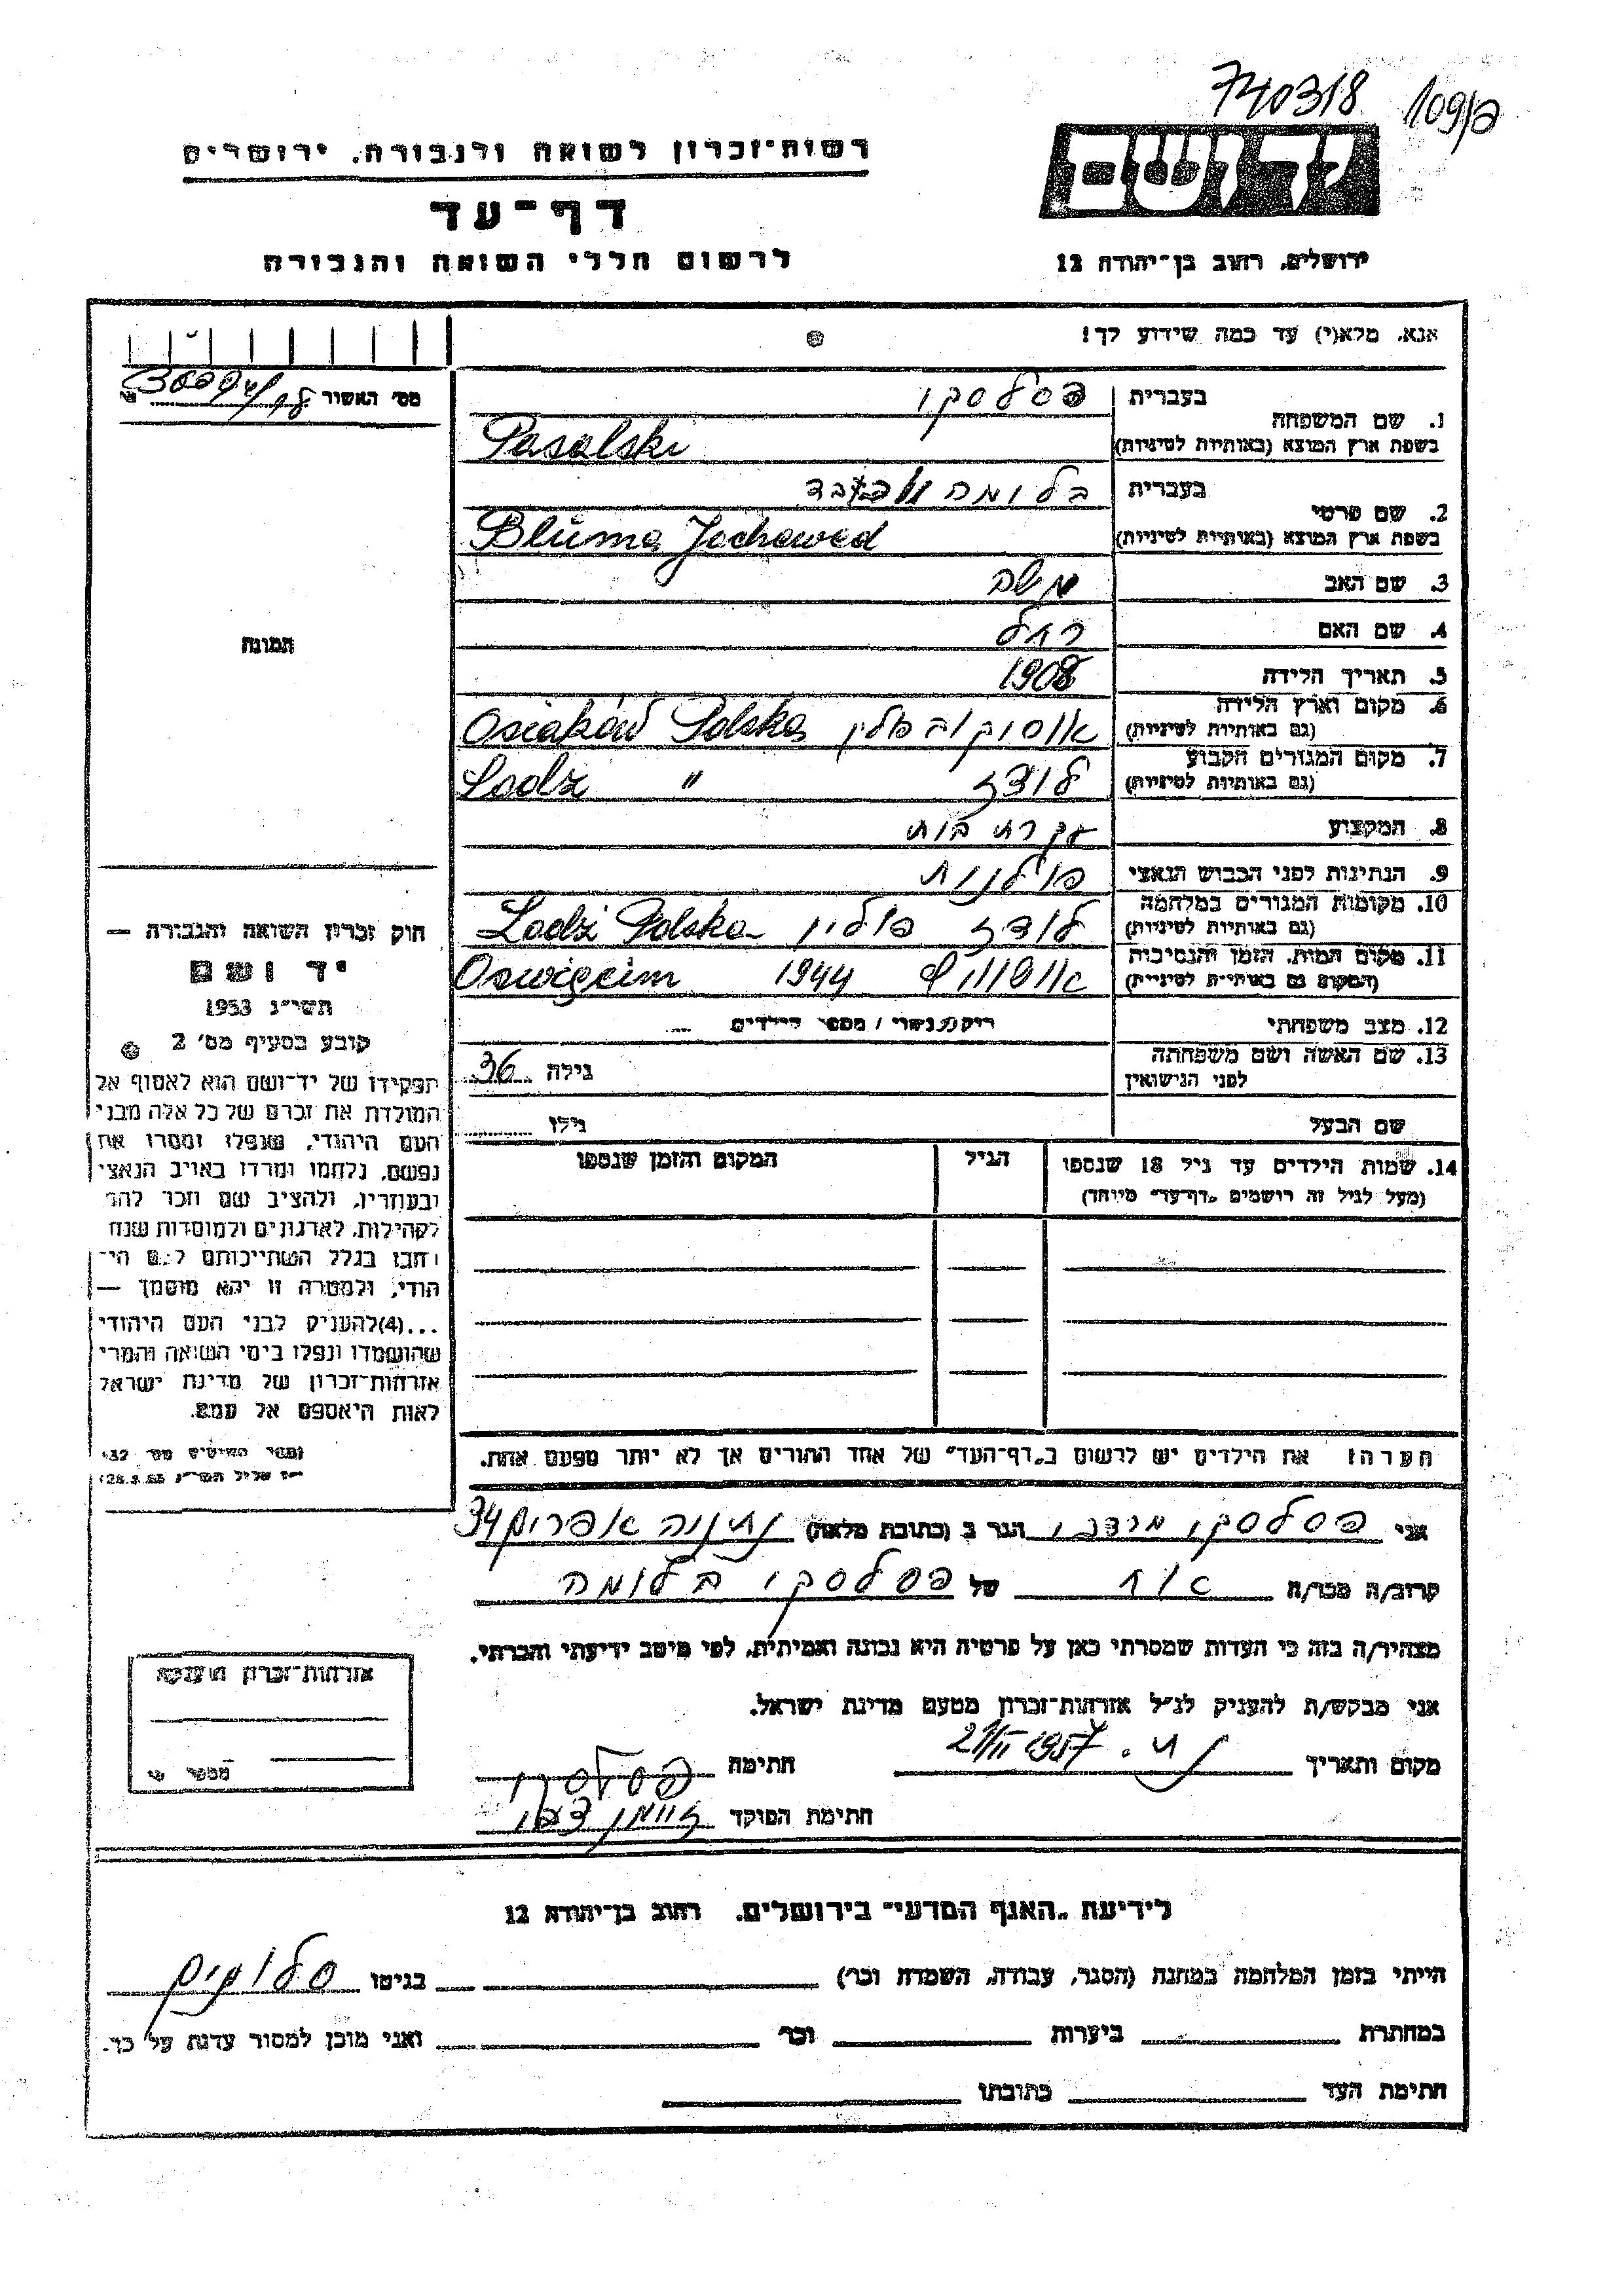 740318
109/פ
רשות־זכרון לשואה ולגבורה, ירושלים
דף־עד
לרשום חללי השואה והגבורה
יד ושם
ירושלים, רחוב בן־יהודה 12
אנא, מלא(י) עד כמה שידוע לך!
מס' האשור
1. שם המשפחה
בעברית פסלסקי
בשפת ארץ המוצא (באותיות לטיניות) Pasalski
2. שם פרטי
בעברית בלומה
בשפת ארץ המוצא (באותיות לטיניות) Bluma Jochewed
3. שם האב משה
4. שם האם רחל
5. תאריך הלידה 1908
6. מקום וארץ הלידה
(גם באותיות לטיניות) אוסיקוב פולין Osiaków Polska
7. מקום המגורים הקבוע
(גם באותיות לטיניות) לודז Lodz "
8. המקצוע עקרת בית
9. הנתינות לפני הכבוש הנאצי פולנית
10. מקומות המגורים במלחמה
(גם באותיות לטיניות) לודז פולין Lodz Polska
11. מקום המות, הזמן והנסיבות
(המקום גם באותיות לטיניות) 1944 Oswięcim
12. מצב משפחתי רווק/ה נשוי / מספר הילדים
13. שם האשה ושם משפחתה
לפני הנישואין
גילה 36
שם הבעל
גילו
14. שמות הילדים עד גיל 18 שנספו
(מעל לגיל זה רושמים „דף־עד" מיוחד)
הגיל
המקום והזמן שנספו
תמונה
חוק זכרון השואה והגבורה —
יד ושם
תשי"ג 1953
קובע בסעיף מס' 2
תפקידו של יד־ושם הוא לאסוף אל
המולדת את זכרם של כל אלה מבני
העם היהודי, שנפלו ומסרו את
נפשם, נלחמו ומרדו באויב הנאצי
ובעוזריו, ולהציב שם וזכר להם
לקהילות, לארגונים ולמוסדות שנח
רחבו בגלל השתייכותם לעם הי־
הודי, ולמטרה זו יהא מוסמך —
...(4) להעניק לבני העם היהודי
שהושמדו ונפלו בימי השואה והמרי
אזרחות־זכרון של מדינת ישראל
לאות היאספם אל עמם.
הערה! את הילדים יש לרשום ב„דף־העד" של אחד ההורים אך לא יותר מפעם אחת.
אני פסלסקי מרדכי הגר ב (כתובת מלאה) נתניה אפרים 34
קרוב/ה מכר/ה אח של פסלסקי בלומה
מצהיר/ה בזה כי העדות שמסרתי כאן על פרטיה היא נכונה ואמיתית, לפי מיטב ידיעתי והכרתי.
אני מבקש/ת להעניק לנ"ל אזרחות־זכרון מטעם מדינת ישראל.
מקום ותאריך 21/II 1957 חתימה פסלסקי
חתימת הפוקד
אזרחות־זכרון הוענקה
מספר
לידיעת „האגף המדעי" בירושלים, רחוב בן־יהודה 12
הייתי בזמן המלחמה במחנה (הסגר, עבודה, השמדה וכו') בגיטו
במחתרת ביערות וכו' ואני מוכן למסור עדות על כך.
חתימת העד כתובתו